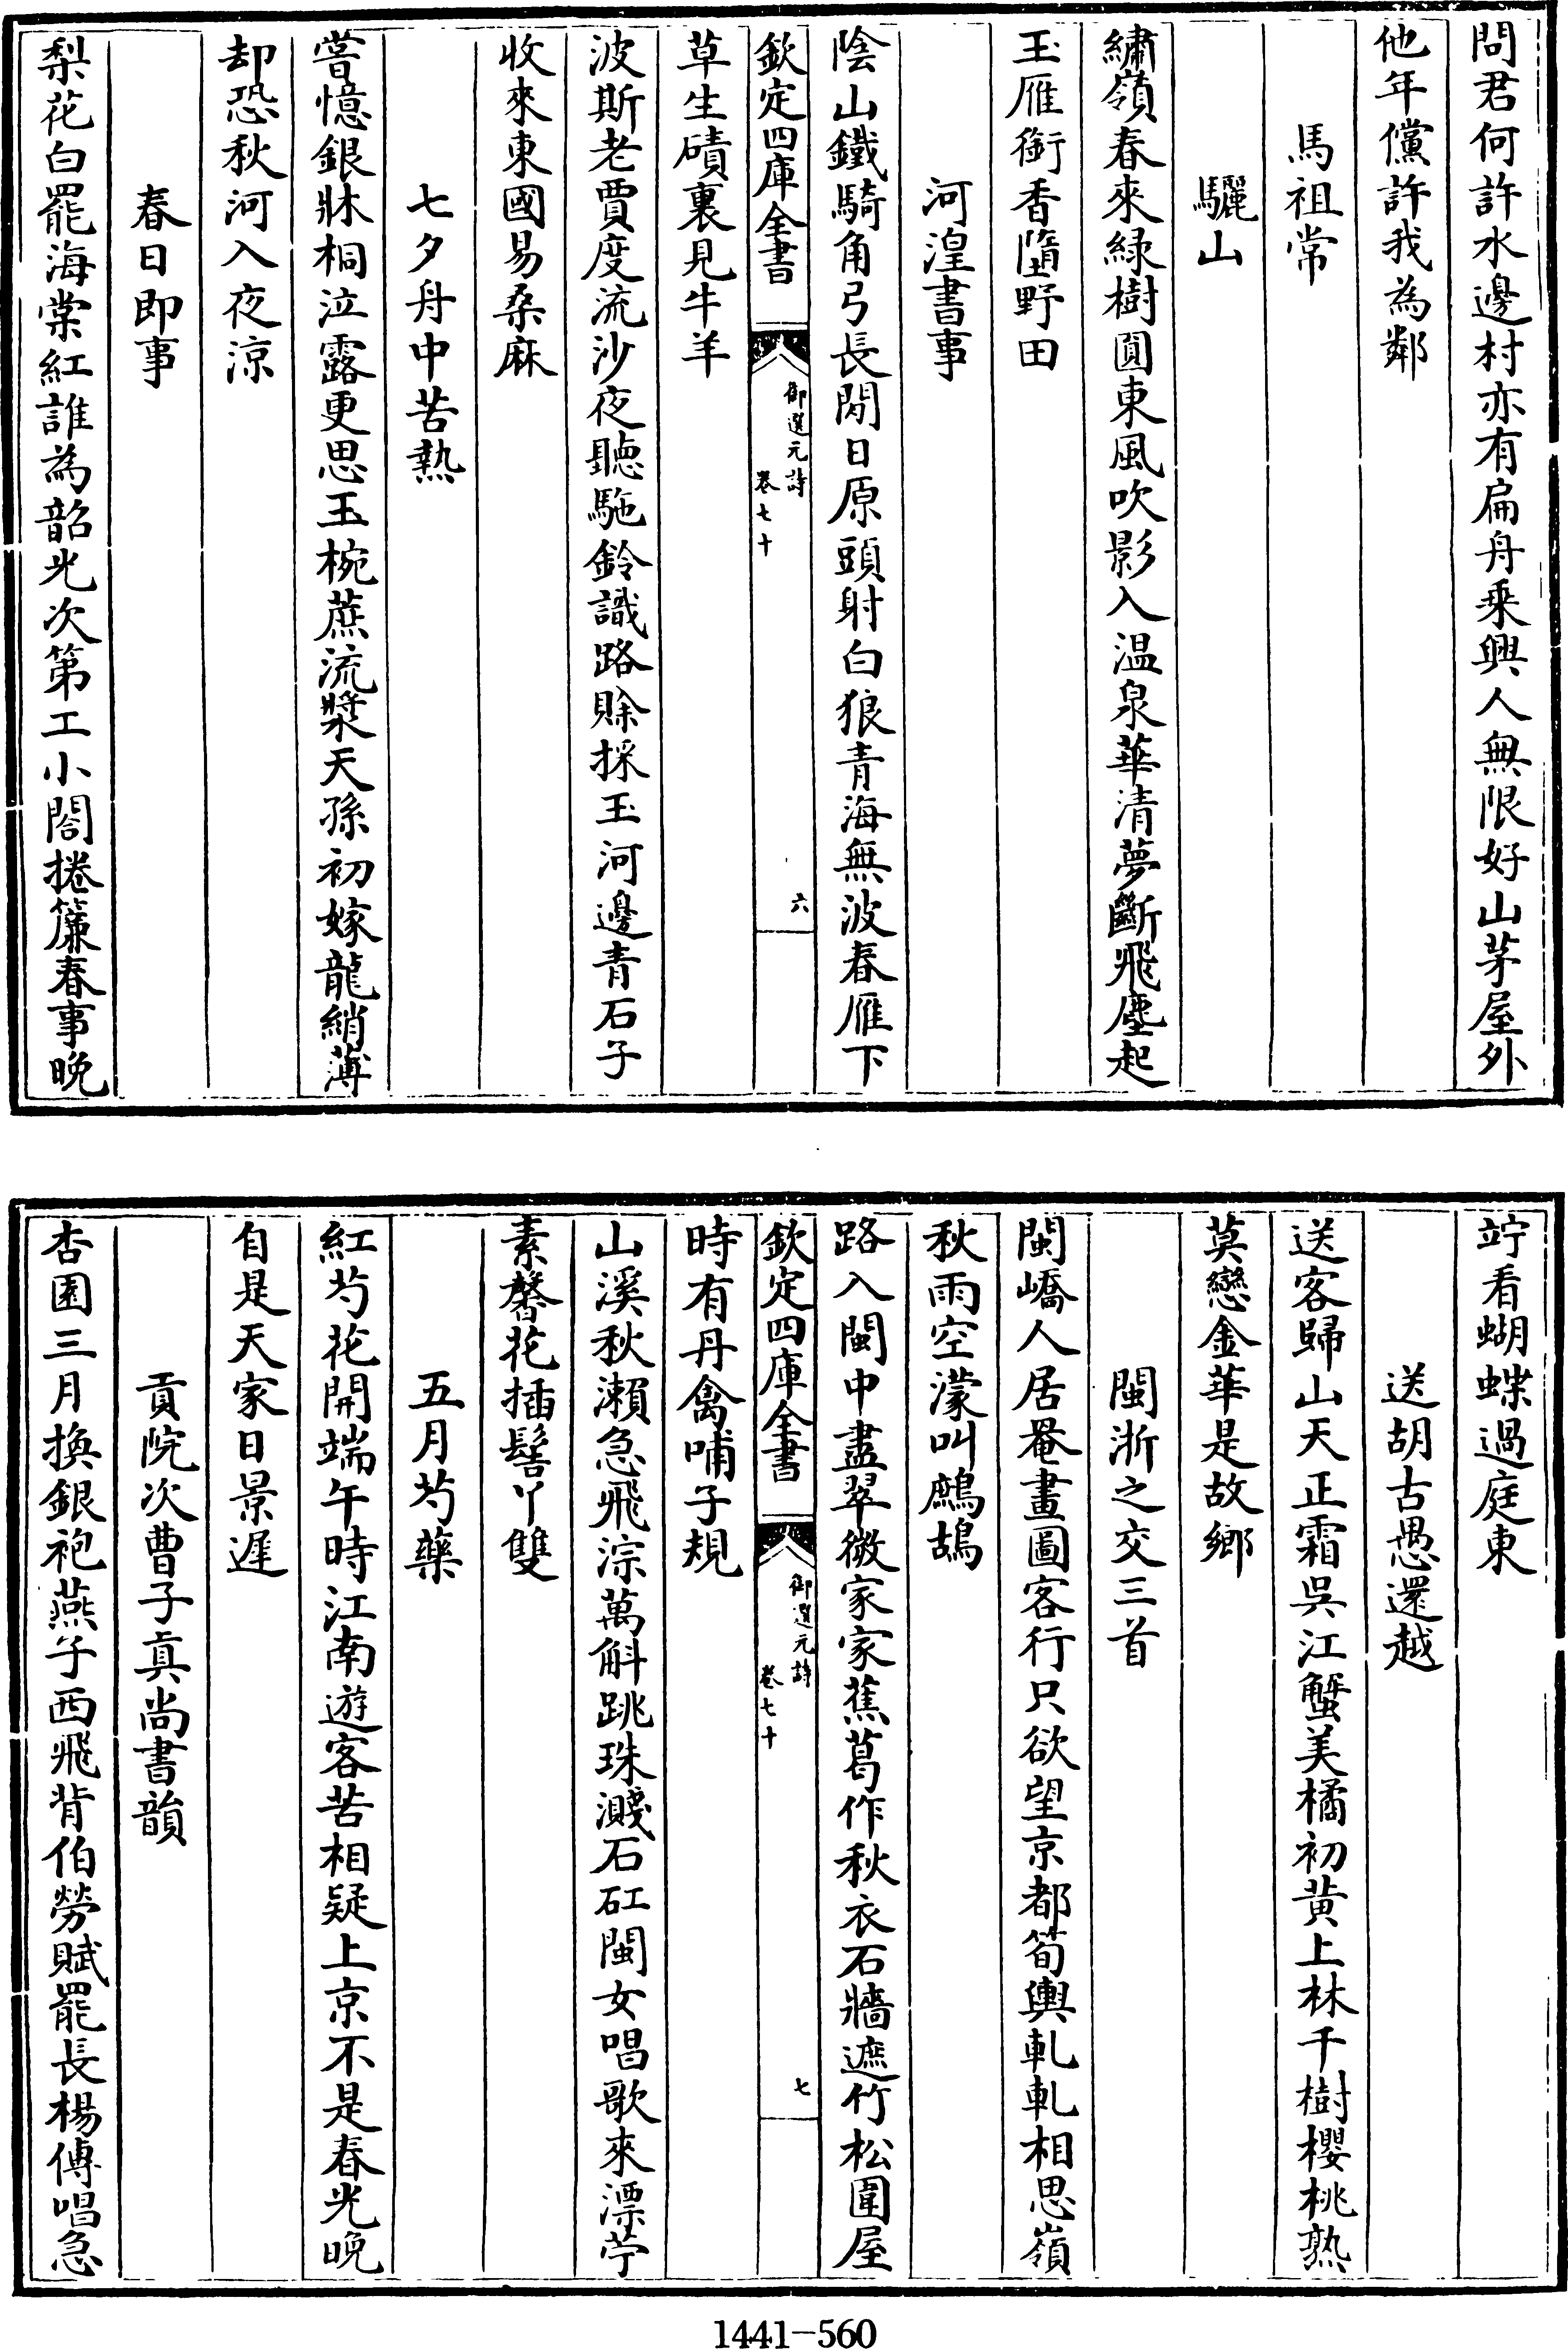 問君何許水邊村亦有扁舟乗興人無限好山茅屋外
他年儻許我為鄰
馬祖常
驪山
繡嶺春來緑樹圓東風吹影入温泉華清夢斷飛塵起
玉雁銜香墮野田
河湟書事
陰山鐵騎角弓長閒日原頭射白狼青海無波春雁下
欽定四庫全書
御選元詩
卷七十
六
草生磧裏見牛羊
波斯老賈度流沙夜聽駞鈴識路賒採玉河邊青石子
收來東國易桑麻
七夕舟中苦熱
嘗憶銀牀桐泣露更思玉椀蔗流漿天孫初嫁龍綃薄
却恐秋河入夜涼
春日即事
梨花白罷海棠紅誰為韶光次第工小閣捲簾春事晚
竚看蝴蝶過庭東
送胡古愚還越
送客歸山天正霜吳江蟹美橘初黄上林千樹櫻桃熟
莫戀金華是故鄉
閩浙之交三首
閩嶠人居罨畫圖客行只欲望京都筍輿軋軋相思嶺
秋雨空濛叫鷓鴣
路入閩中盡翠微家家蕉葛作秋衣石牆遮竹松圍屋
欽定四庫全書
御選元詩
卷七十
七
時有丹禽哺子規
山溪秋瀨急飛淙萬斛跳珠濺石矼閩女唱歌來漂苧
素馨花插髻丫雙
五月芍藥
紅芍花開端午時江南遊客苦相疑上京不是春光晚
自是天家日景遲
貢院次曹子真尚書韻
杏園三月換銀袍燕子西飛背伯勞賦罷長楊傳唱急
1441-560